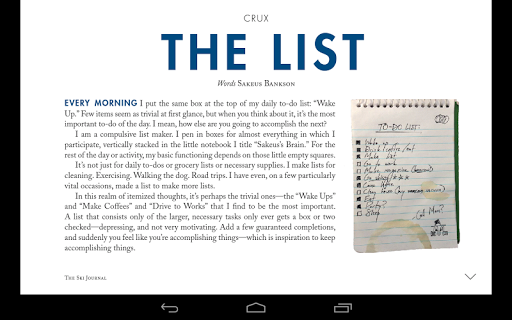 CRUX
THE LIST
Words Sakeus Bankson
EVERY MORNING I put the same box at the top of my daily to-do list: “Wake
Up.” Few items seem as trivial at first glance, but when you think about it, it’s the most
important to-do of the day. I mean, how else are you going to accomplish the next?
I am a compulsive list maker. I pen in boxes for almost everything in which I
participate, vertically stacked in the little notebook I title “Sakeus’s Brain.” For the
rest of the day or activity, my basic functioning depends on those little empty squares.
It’s not just for daily to-dos or grocery lists or necessary supplies. I make lists for
cleaning. Exercising. Walking the dog. Road trips. I have even, on a few particularly
vital occasions, made a list to make more lists.
In this realm of itemized thoughts, it’s perhaps the trivial ones—the “Wake Ups”
and “Make Coffees” and “Drive to Works” that I find to be the most important.
A list that consists only of the larger, necessary tasks only ever gets a box or two
checked—depressing, and not very motivating. Add a few guaranteed completions,
and suddenly you feel like you’re accomplishing things—which is inspiration to keep
accomplishing things.
TO-DO LIST:
Wake up
Make list
Go to work
Come home
Eat
Party?
Sleep
The Ski Journal